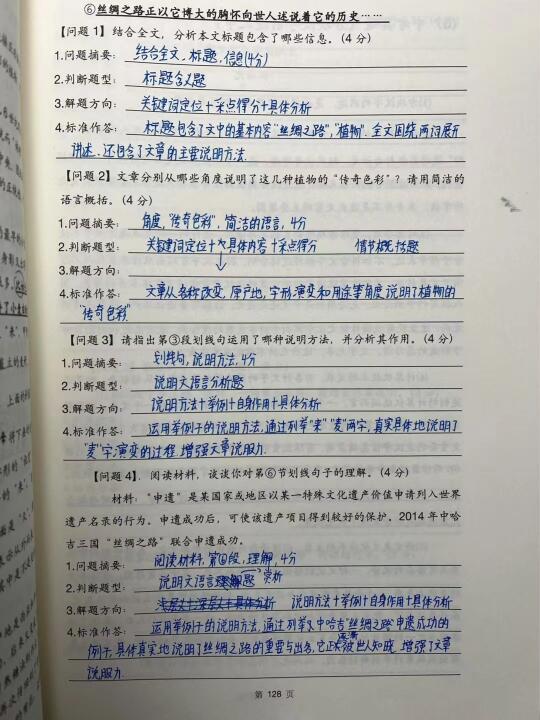 ⑥丝绸之路正以它博大的胸怀向世人述说着它的历史……
【问题 1】结合全文，分析本文标题包含了哪些信息。（4 分）
1.问题摘要：结合全文，标题，信息(4分)
2.判断题型：标题含义题
3.解题方向：关键词定位＋采点得分＋具体分析
4.标准作答：标题包含了文中的基本内容"丝绸之路"，"植物"．全文围绕两词展开
讲述．还包含了文章的主要说明方法．
【问题 2】文章分别从哪些角度说明了这几种植物的“传奇色彩”？请用简洁的
语言概括。（4 分）
1.问题摘要：角度，"传奇色彩"，简洁的语言，4分
2.判断题型：关键词定位＋具体内容＋采点得分 情节概括题
3.解题方向：
4.标准作答：文章从名称改变，原产地，字形演变和用途等角度说明了植物的
"传奇色彩"
【问题 3】请指出第③段划线句运用了哪种说明方法，并分析其作用。（4 分）
1.问题摘要：划线句，说明方法，4分
2.判断题型：说明文语言分析题
3.解题方向：说明方法＋举例＋自身作用＋具体分析
4.标准作答：运用举例子的说明方法，通过列举"来""麦"两字，真实具体地说明了
"麦"字演变的过程．增强文章说服力．
【问题 4】．阅读材料，谈谈你对第⑥节划线句子的理解。（4 分）
材料：“申遗”是某国家或地区以某一特殊文化遗产价值申请列入世界
遗产名录的行为。申遗成功后，可使该遗产项目得到较好的保护。2014 年中哈
吉三国“丝绸之路”联合申遗成功。
1.问题摘要：阅读材料，第⑥段，理解，4分
2.判断题型：说明文语言理解题 赏析
3.解题方向：浅层次＋深层次＋具体分析 说明方法＋举例＋自身作用＋具体分析
4.标准作答：运用举例子的说明方法，通过列举中哈吉"丝绸之路"申遗成功的
例子，具体真实地说明了丝绸之路的重要与出名，它正逐渐被世人知晓，增强了文章
说服力．
第 128 页